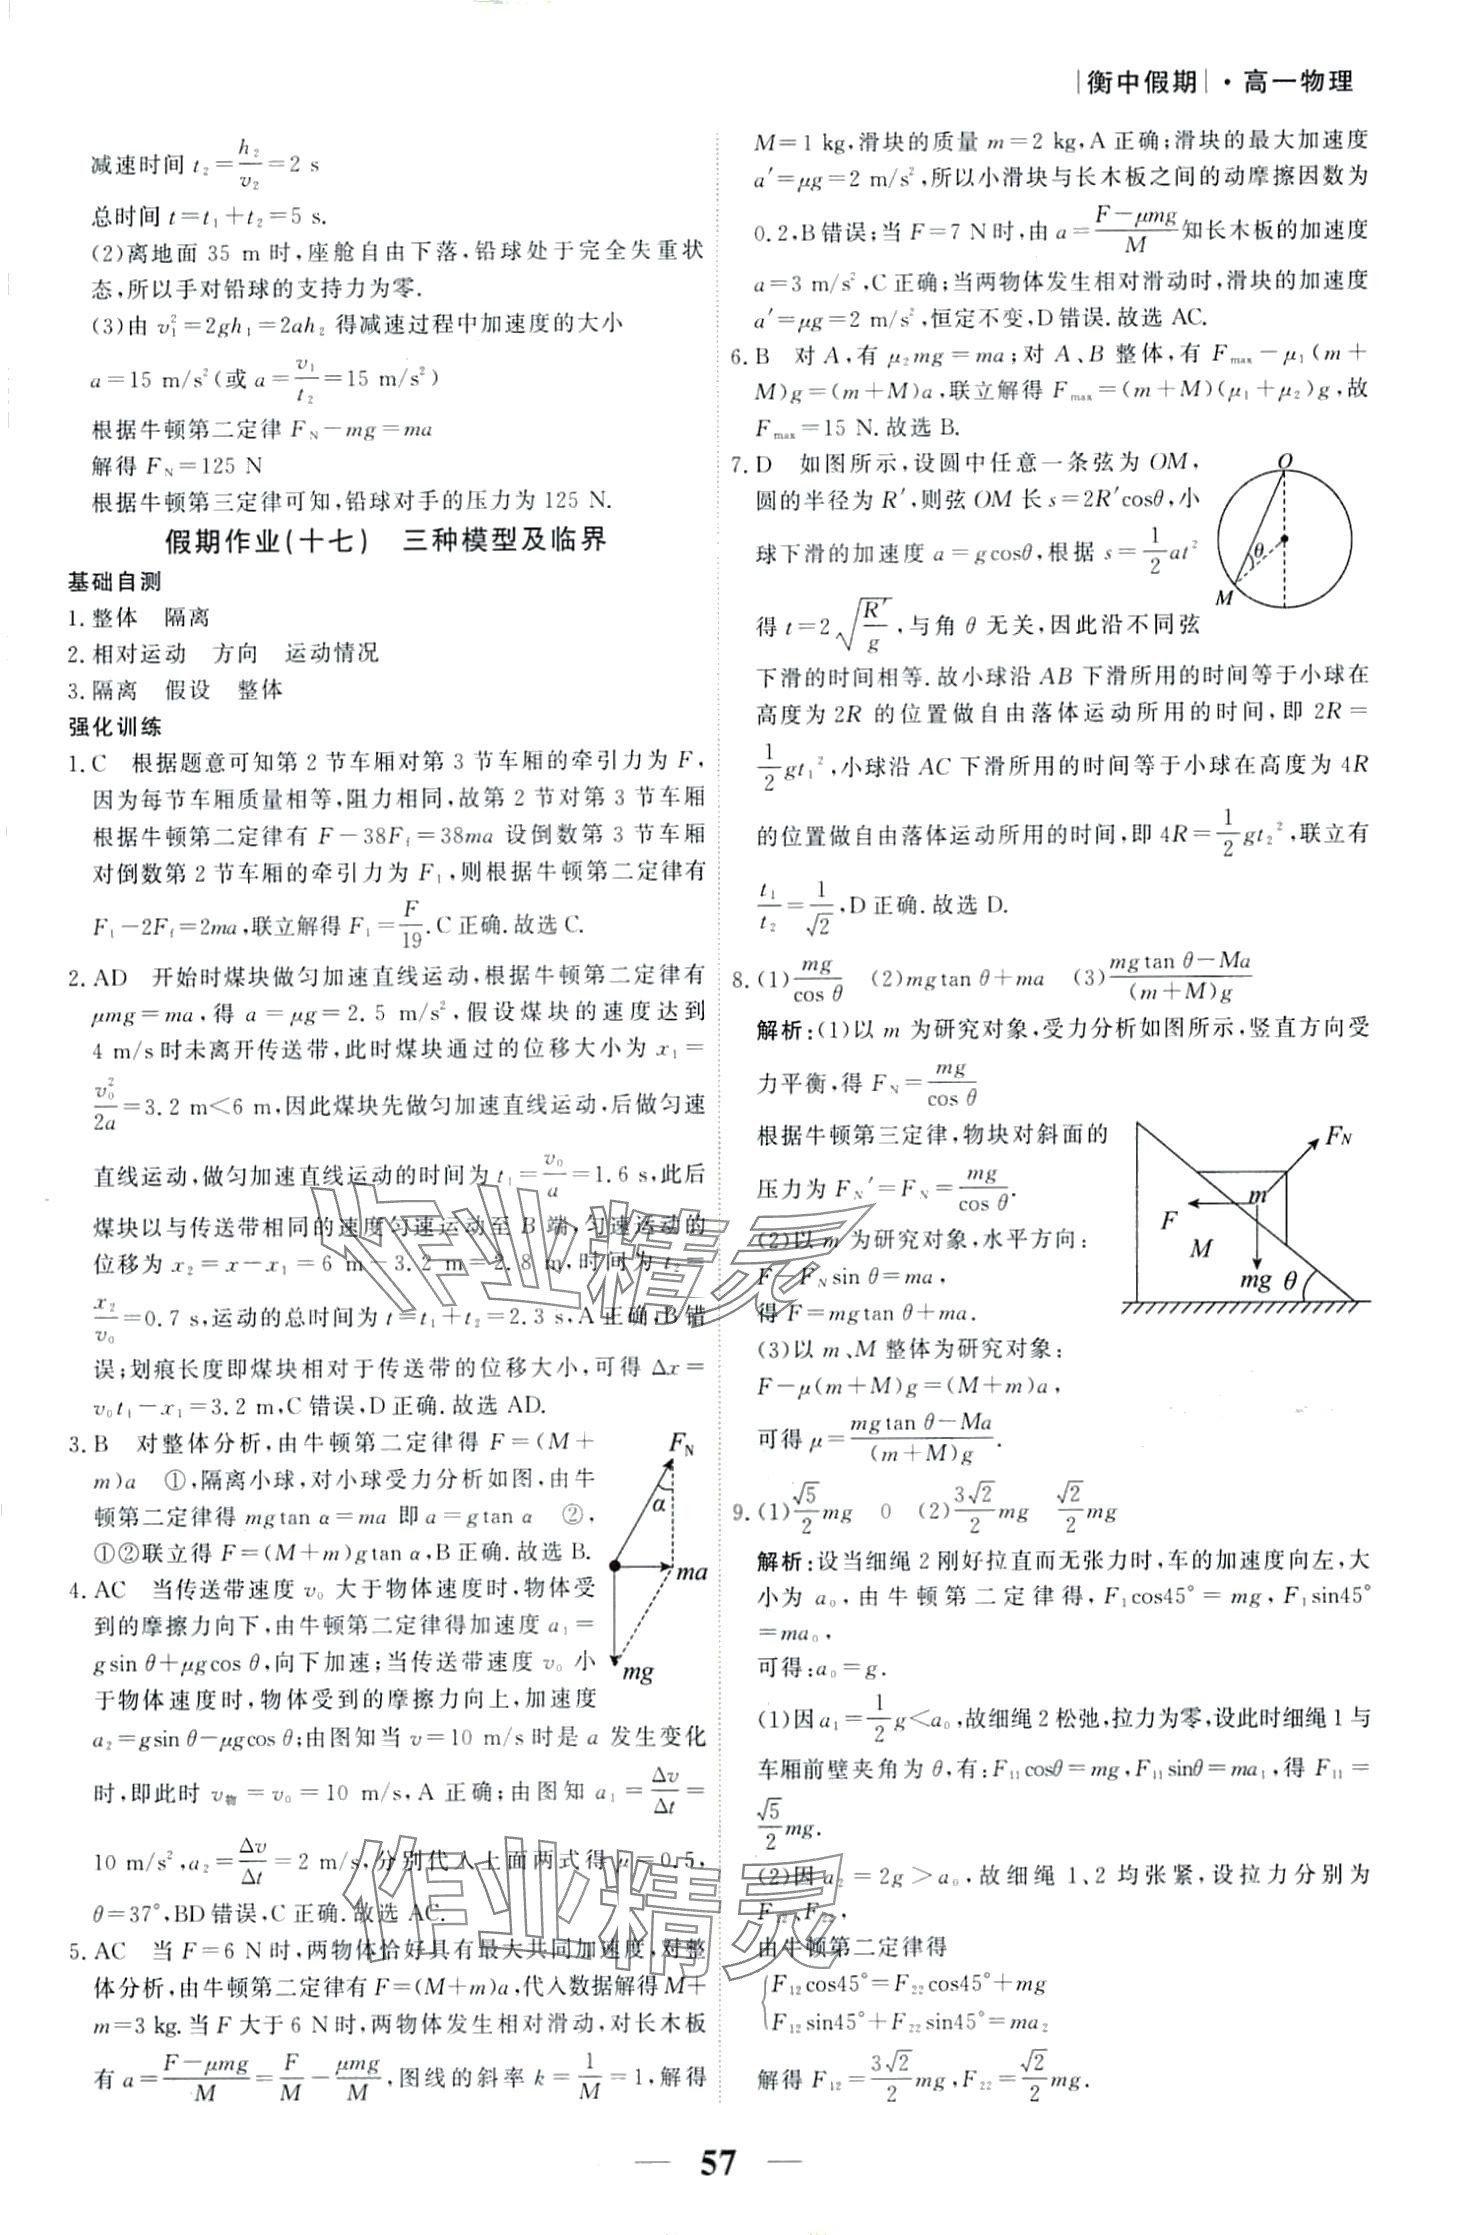 |衡中假期|·高一物理
减速时间 t₂=h₂/v₂=2 s
总时间 t=t₁+t₂=5 s.
(2)离地面 35 m 时,座舱自由下落,铅球处于完全失重状
态,所以手对铅球的支持力为零.
(3)由 v₁²=2gh₁=2ah₂ 得减速过程中加速度的大小
a=15 m/s²(或 a=v₁/t₂=15 m/s²)
根据牛顿第二定律 F_N-mg=ma
解得 F_N=125 N
根据牛顿第三定律可知,铅球对手的压力为 125 N.
假期作业(十七) 三种模型及临界
基础自测
1.整体 隔离
2.相对运动 方向 运动情况
3.隔离 假设 整体
强化训练
1.C 根据题意可知第 2 节车厢对第 3 节车厢的牵引力为 F,
因为每节车厢质量相等,阻力相同,故第 2 节对第 3 节车厢
根据牛顿第二定律有 F-38F_f=38ma 设倒数第 3 节车厢
对倒数第 2 节车厢的牵引力为 F₁,则根据牛顿第二定律有
F₁-2F_f=2ma,联立解得 F₁=F/19.C 正确.故选 C.
2.AD 开始时煤块做匀加速直线运动,根据牛顿第二定律有
μmg=ma,得 a=μg=2.5 m/s²,假设煤块的速度达到
4 m/s 时未离开传送带,此时煤块通过的位移大小为 x₁=
v₀²/2a=3.2 m<6 m,因此煤块先做匀加速直线运动,后做匀速
直线运动,做匀加速直线运动的时间为 t₁=v₀/a=1.6 s,此后
煤块以与传送带相同的速度匀速运动至 B 端,匀速运动的
位移为 x₂=x-x₁=6 m-3.2 m=2.8 m,时间为 t₂=
x₂/v₀=0.7 s,运动的总时间为 t=t₁+t₂=2.3 s,A 正确,B 错
误;划痕长度即煤块相对于传送带的位移大小,可得 Δx=
v₀t₁-x₁=3.2 m,C 错误,D 正确.故选 AD.
3.B 对整体分析,由牛顿第二定律得 F=(M+
m)a ①,隔离小球,对小球受力分析如图,由牛
顿第二定律得 mgtan α=ma 即 a=gtan α ②,
①②联立得 F=(M+m)gtan α,B 正确.故选 B.
F_N
α
ma
mg
4.AC 当传送带速度 v₀ 大于物体速度时,物体受
到的摩擦力向下,由牛顿第二定律得加速度 a₁=
gsin θ+μgcos θ,向下加速;当传送带速度 v₀ 小
于物体速度时,物体受到的摩擦力向上,加速度
a₂=gsin θ-μgcos θ;由图知当 v=10 m/s 时是 a 发生变化
时,即此时 v物=v₀=10 m/s,A 正确;由图知 a₁=Δv/Δt=
10 m/s²,a₂=Δv/Δt=2 m/s,分别代入上面两式得 μ=0.5,
θ=37°,BD 错误,C 正确.故选 AC.
5.AC 当 F=6 N 时,两物体恰好具有最大共同加速度,对整
体分析,由牛顿第二定律有 F=(M+m)a,代入数据解得 M+
m=3 kg.当 F 大于 6 N 时,两物体发生相对滑动,对长木板
有 a=(F-μmg)/M=F/M-μmg/M,图线的斜率 k=1/M=1,解得
M=1 kg,滑块的质量 m=2 kg,A 正确;滑块的最大加速度
a′=μg=2 m/s²,所以小滑块与长木板之间的动摩擦因数为
0.2,B 错误;当 F=7 N 时,由 a=(F-μmg)/M 知长木板的加速度
a=3 m/s²,C 正确;当两物体发生相对滑动时,滑块的加速度
a′=μg=2 m/s²,恒定不变,D 错误.故选 AC.
6.B 对 A,有 μ₂mg=ma;对 A、B 整体,有 F_max-μ₁(m+
M)g=(m+M)a,联立解得 F_max=(m+M)(μ₁+μ₂)g,故
F_max=15 N.故选 B.
7.D 如图所示,设圆中任意一条弦为 OM,
圆的半径为 R′,则弦 OM 长 s=2R′cosθ,小
球下滑的加速度 a=gcosθ,根据 s=1/2at²
得 t=2√(R′/g),与角 θ 无关,因此沿不同弦
O
θ
M
下滑的时间相等.故小球沿 AB 下滑所用的时间等于小球在
高度为 2R 的位置做自由落体运动所用的时间,即 2R=
1/2gt₁²,小球沿 AC 下滑所用的时间等于小球在高度为 4R
的位置做自由落体运动所用的时间,即 4R=1/2gt₂²,联立有
t₁/t₂=1/√2,D 正确.故选 D.
8.(1)mg/cos θ (2)mgtan θ+ma (3)(mgtan θ-Ma)/((m+M)g)
解析:(1)以 m 为研究对象,受力分析如图所示,竖直方向受
力平衡,得 F_N=mg/cos θ
根据牛顿第三定律,物块对斜面的
压力为 F_N′=F_N=mg/cos θ.
(2)以 m 为研究对象,水平方向:
F-F_N sin θ=ma,
得 F=mgtan θ+ma.
(3)以 m、M 整体为研究对象:
F-μ(m+M)g=(M+m)a,
可得 μ=(mgtan θ-Ma)/((m+M)g).
F_N
m
F
M
mg
θ
9.(1)√5/2mg 0 (2)3√2/2mg √2/2mg
解析:设当细绳 2 刚好拉直而无张力时,车的加速度向左,大
小为 a₀,由牛顿第二定律得,F₁cos45°=mg,F₁sin45°
=ma₀,
可得:a₀=g.
(1)因 a₁=1/2g<a₀,故细绳 2 松弛,拉力为零,设此时细绳 1 与
车厢前壁夹角为 θ,有:F₁₁cosθ=mg,F₁₁sinθ=ma₁,得 F₁₁=
√5/2mg.
(2)因 a₂=2g>a₀,故细绳 1、2 均张紧,设拉力分别为
F₁₂、F₂₂,
由牛顿第二定律得
{F₁₂cos45°=F₂₂cos45°+mg
F₁₂sin45°+F₂₂sin45°=ma₂
解得 F₁₂=3√2/2mg,F₂₂=√2/2mg.
作业精灵
作业精灵
— 57 —